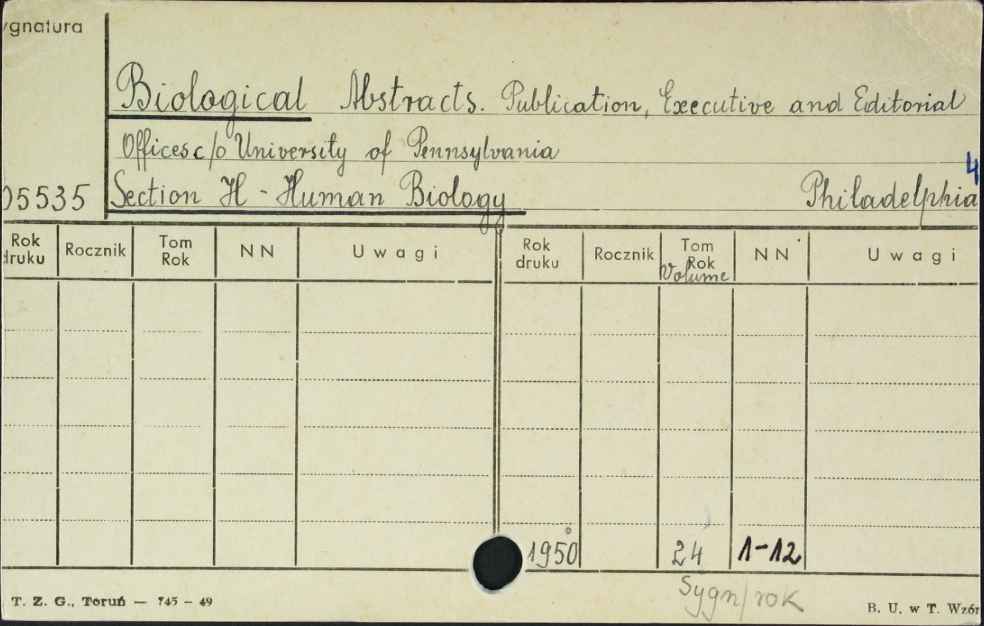 ygnatura
Biological Abstracts. Publication, Executive and Editorial
Offices c/o University of Pennsylvania
4
05535 Section H - Human Biology Philadelphia
Rok druku Rocznik Tom Rok N N U w a g i Rok druku Rocznik Tom Rok Volume N N U w a g i
1950 24 1-12
Sygn/rok
T. Z. G., Toruń — 745 - 49 B. U. w T. Wzór